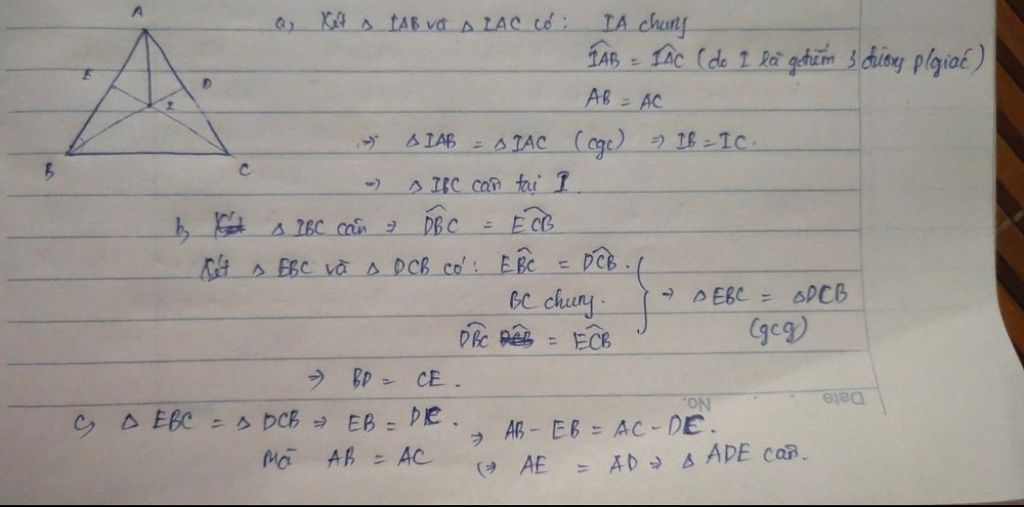 A
E
I
D
B
C
a, Xét Δ IAB và Δ IAC có: IA chung
IAB = IAC (do I là gđiểm 3 đường p/giác)
AB = AC
=> Δ IAB = Δ IAC (cgc) => IB = IC.
=> Δ IBC cân tại I
b, Δ IBC cân => DBC = ECB
Xét Δ EBC và Δ DCB có: EBC = DCB.
BC chung.
DBC = ECB
=> Δ EBC = Δ DCB
(gcg)
=> BD = CE.
Date
No.
c, Δ EBC = Δ DCB => EB = DC.
=> AB - EB = AC - DC.
Mà AB = AC
(=> AE = AD => Δ ADE cân.